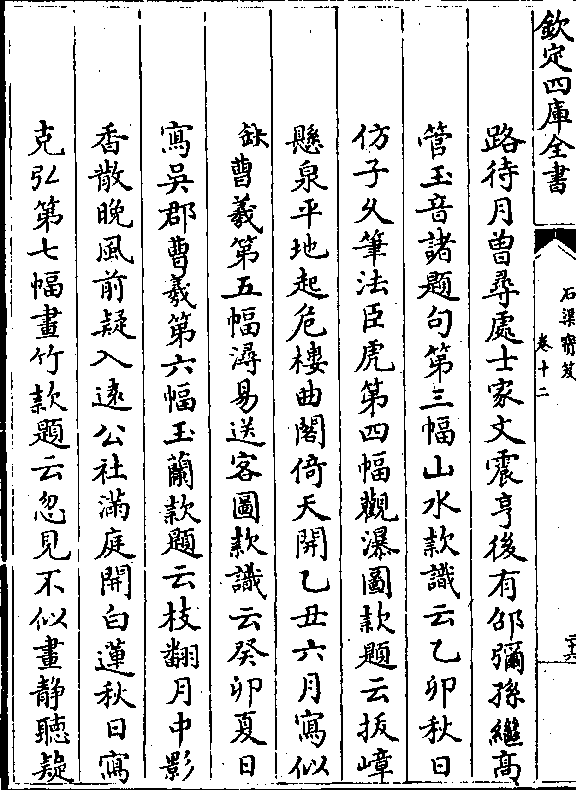 欽定四庫全書
石渠寶笈
卷十二
路待月曾尋處士家文震亨後有邵彌孫繼高
管玉音諸題句第三幅山水款識云乙卯秋日
仿子久筆法臣虎第四幅觀瀑圖款題云拔嶂
懸泉平地起危樓曲閣倚天開乙丑六月寫似
曹羲第五幅潯易送客圖款識云癸卯夏日
寫吳郡曹羲第六幅玉蘭款題云枝翻月中影
香散晚風前疑入遠公社滿庭開白蓮秋日寫
克弘第七幅畫竹款題云忽見不似畫靜聽疑